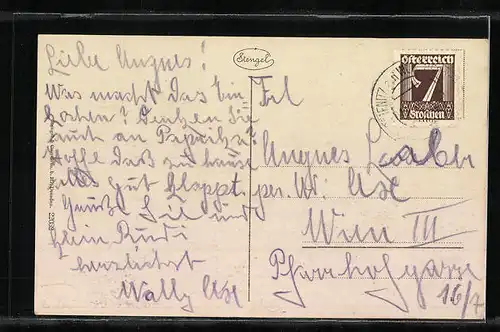 Liebe Augnes!
Was macht das Ein
kochen? Denken Sie
auch an Paprika?
Hoffe daß zu hause
alles gut klappt.
Grüße Sie und
klein Rudi
herzlichst
Wally
Stengel
Österreich
7
Groschen
Frl
Augnes
per. Ad:
Wien III
Pfarrhofgasse
16/7
22029